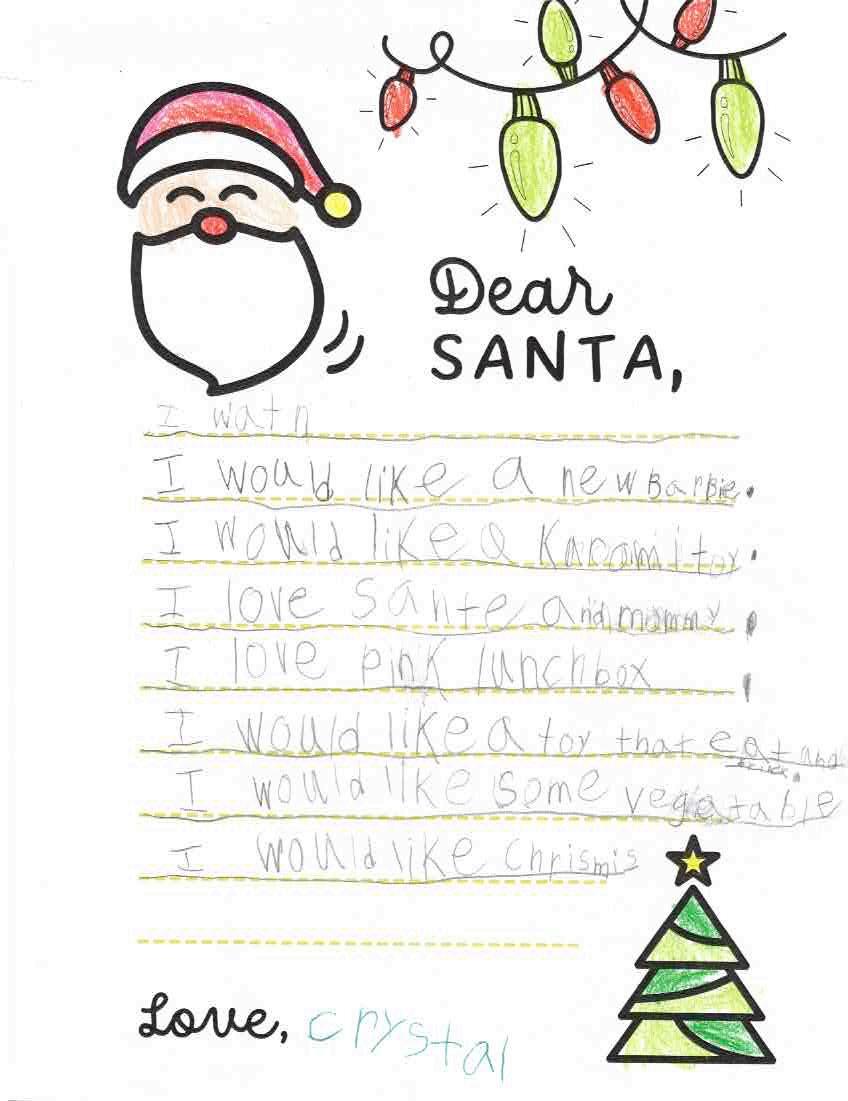 Dear
SANTA,
I watn
I would like a new Barbie.
I would like a Karomi toy.
I love Sante and mommy.
I love pink lunchbox.
I would like a toy that eat and
I would like some vegetable
I would like Chrismis
Love, crystal